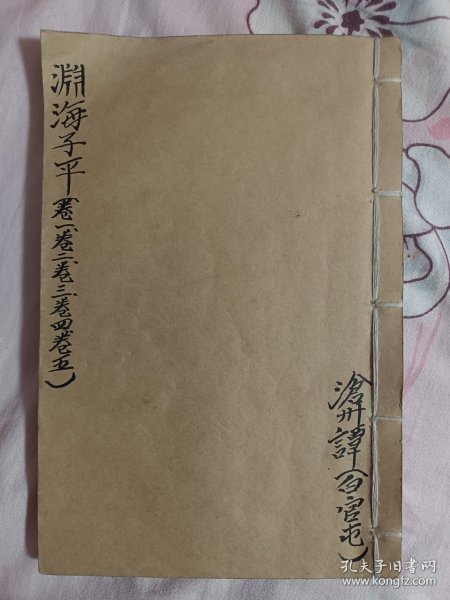 淵海子平(卷一、卷二、卷三、卷四、卷五)
滄州譚(百官屯)
孔夫子旧书网
www.kongfz.com